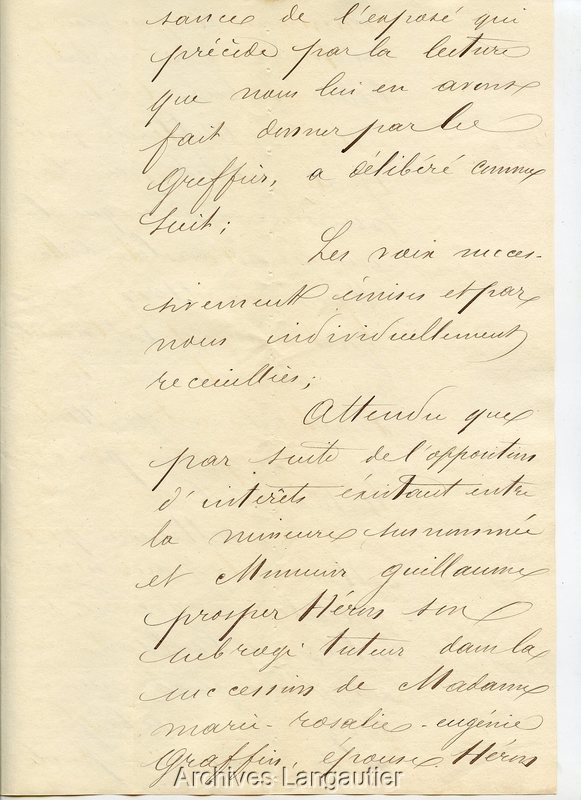 sance de l'exposé qui
précède par la lecture
que nous lui en avons
fait donner par le
Greffier, a délibéré comme
suit;
Les voix succes-
sivement émises et par
nous individuellement
receuillies;
Attendu que
par suite de l'opposition
d'intérêts existant entre
la mineure susnommée
et Monsieur Guillaume
prosper Héron son
subrogé tuteur dans la
succession de Madame
marie-rosalie-eugénie
Graffin, épouse Héron
Archives Langautier